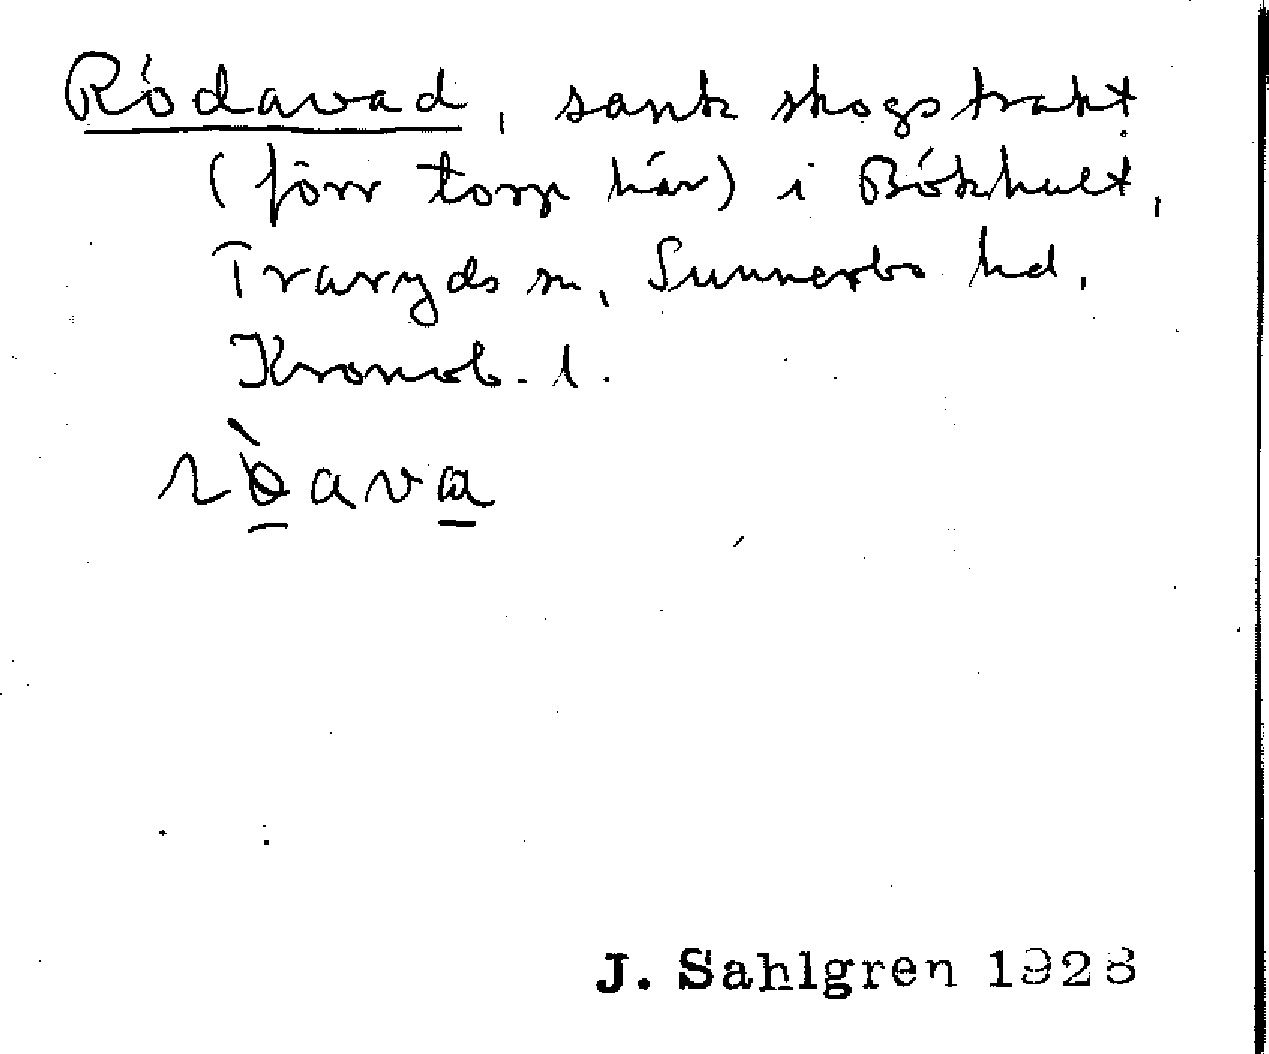 Rödavad, sank skogstrakt
(förr torp här) i Bökhult,
Traryds sn, Sunnerbo hd,
Kronob. l.
J. Sahlgren 1928